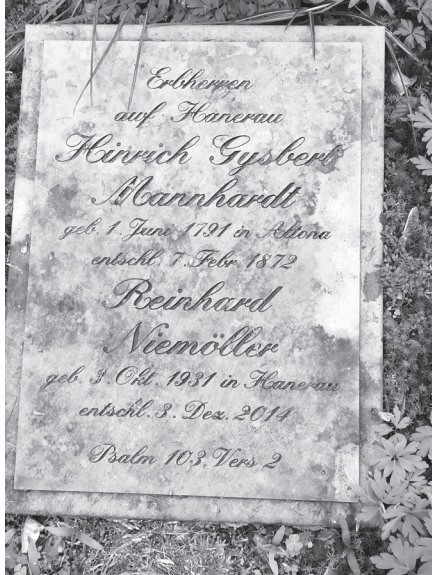 Erbherren
auf Hanerau
Hinrich Gysbert
Mannhardt
geb. 1. Juni 1791 in Altona
entschl. 7. Febr. 1872
Reinhard
Niemöller
geb. 3. Okt. 1931 in Hanerau
entschl. 3. Dez. 2014
Psalm 103, Vers 2